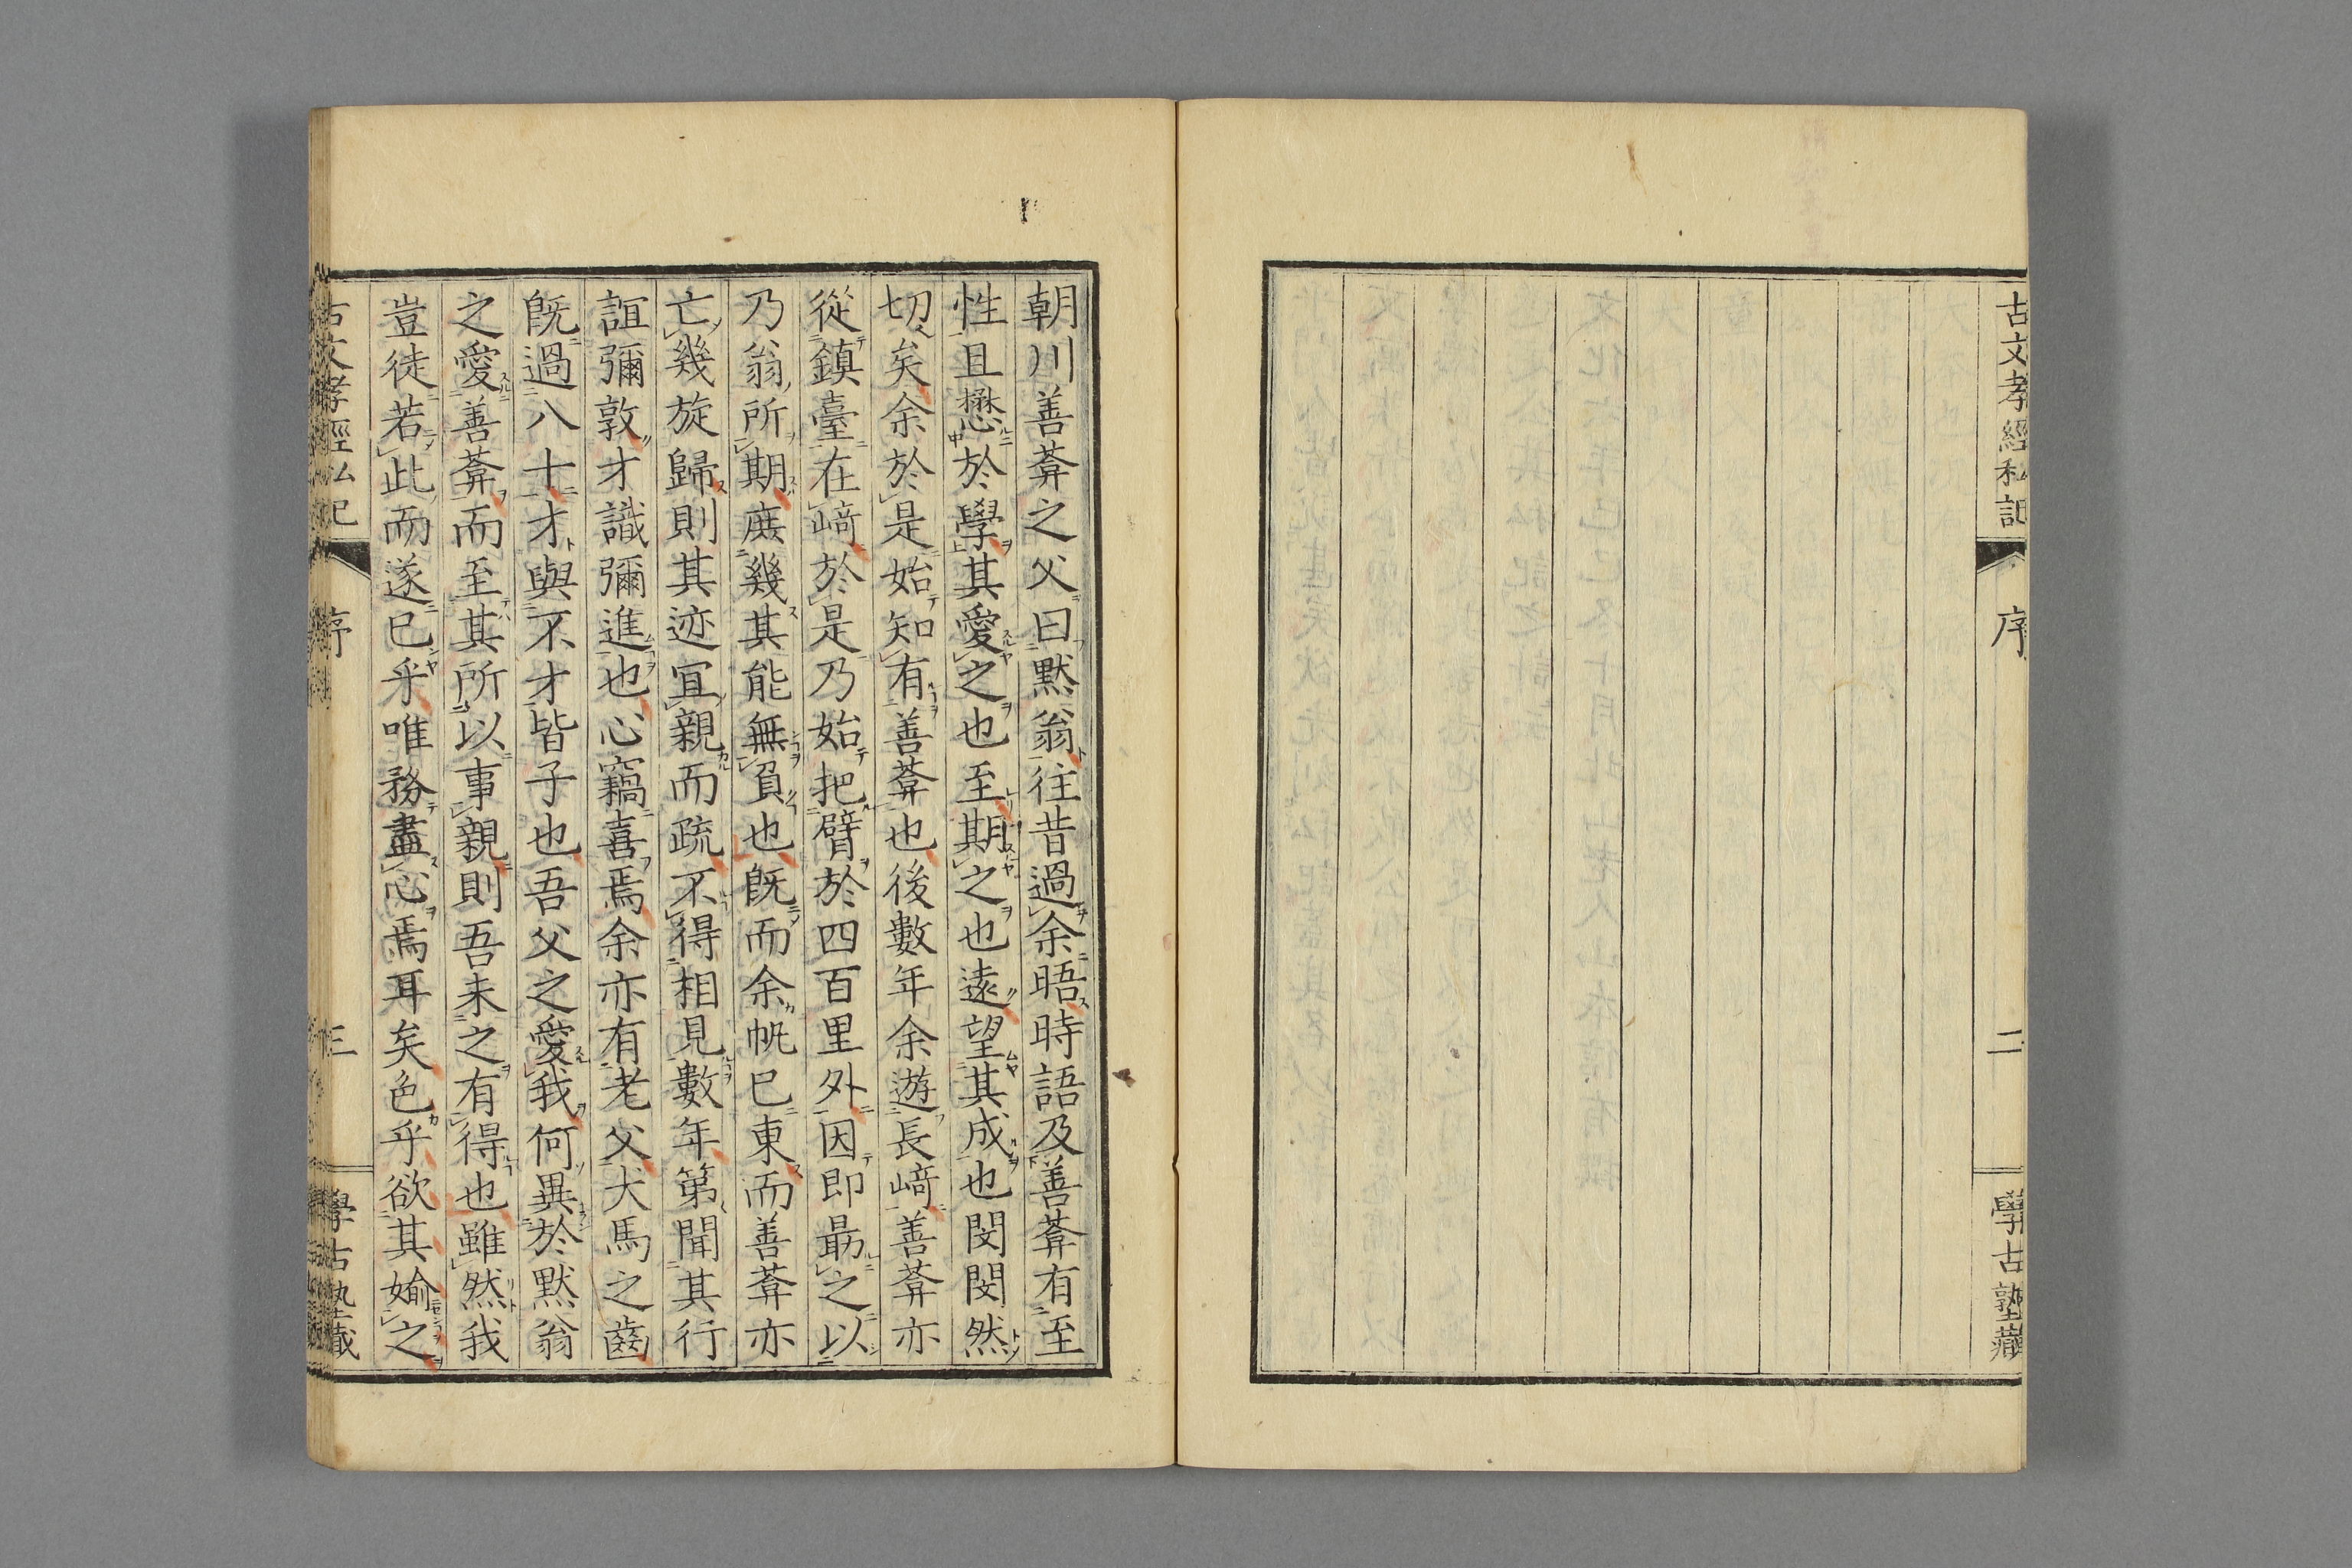 古文孝經私記
序
二
學古塾藏
朝川善葊之父曰默翁往昔過余晤時語及善葊有至
性且懋於學其愛之也至期之也遠望其成也閔閔然
切矣余於是始知有善葊也後數年余遊長﨑善葊亦
從鎮臺在﨑於是乃始把臂於四百里外因即勗之以
乃翁所期庶幾其能無負也既而余帆已東而善葊亦
亡幾旋歸則其迹宜親而疏不得相見數年第聞其行
誼彌敦才識彌進也心竊喜焉余亦有老父犬馬之齒
既過八十才與不才皆子也吾父之愛我何異於默翁
之愛善葊而至其所以事親則吾未之有得也雖然我
豈徒若此而遂已乎唯務盡心焉耳矣色乎欲其愉之
古文孝經私記
序
三
學古塾藏